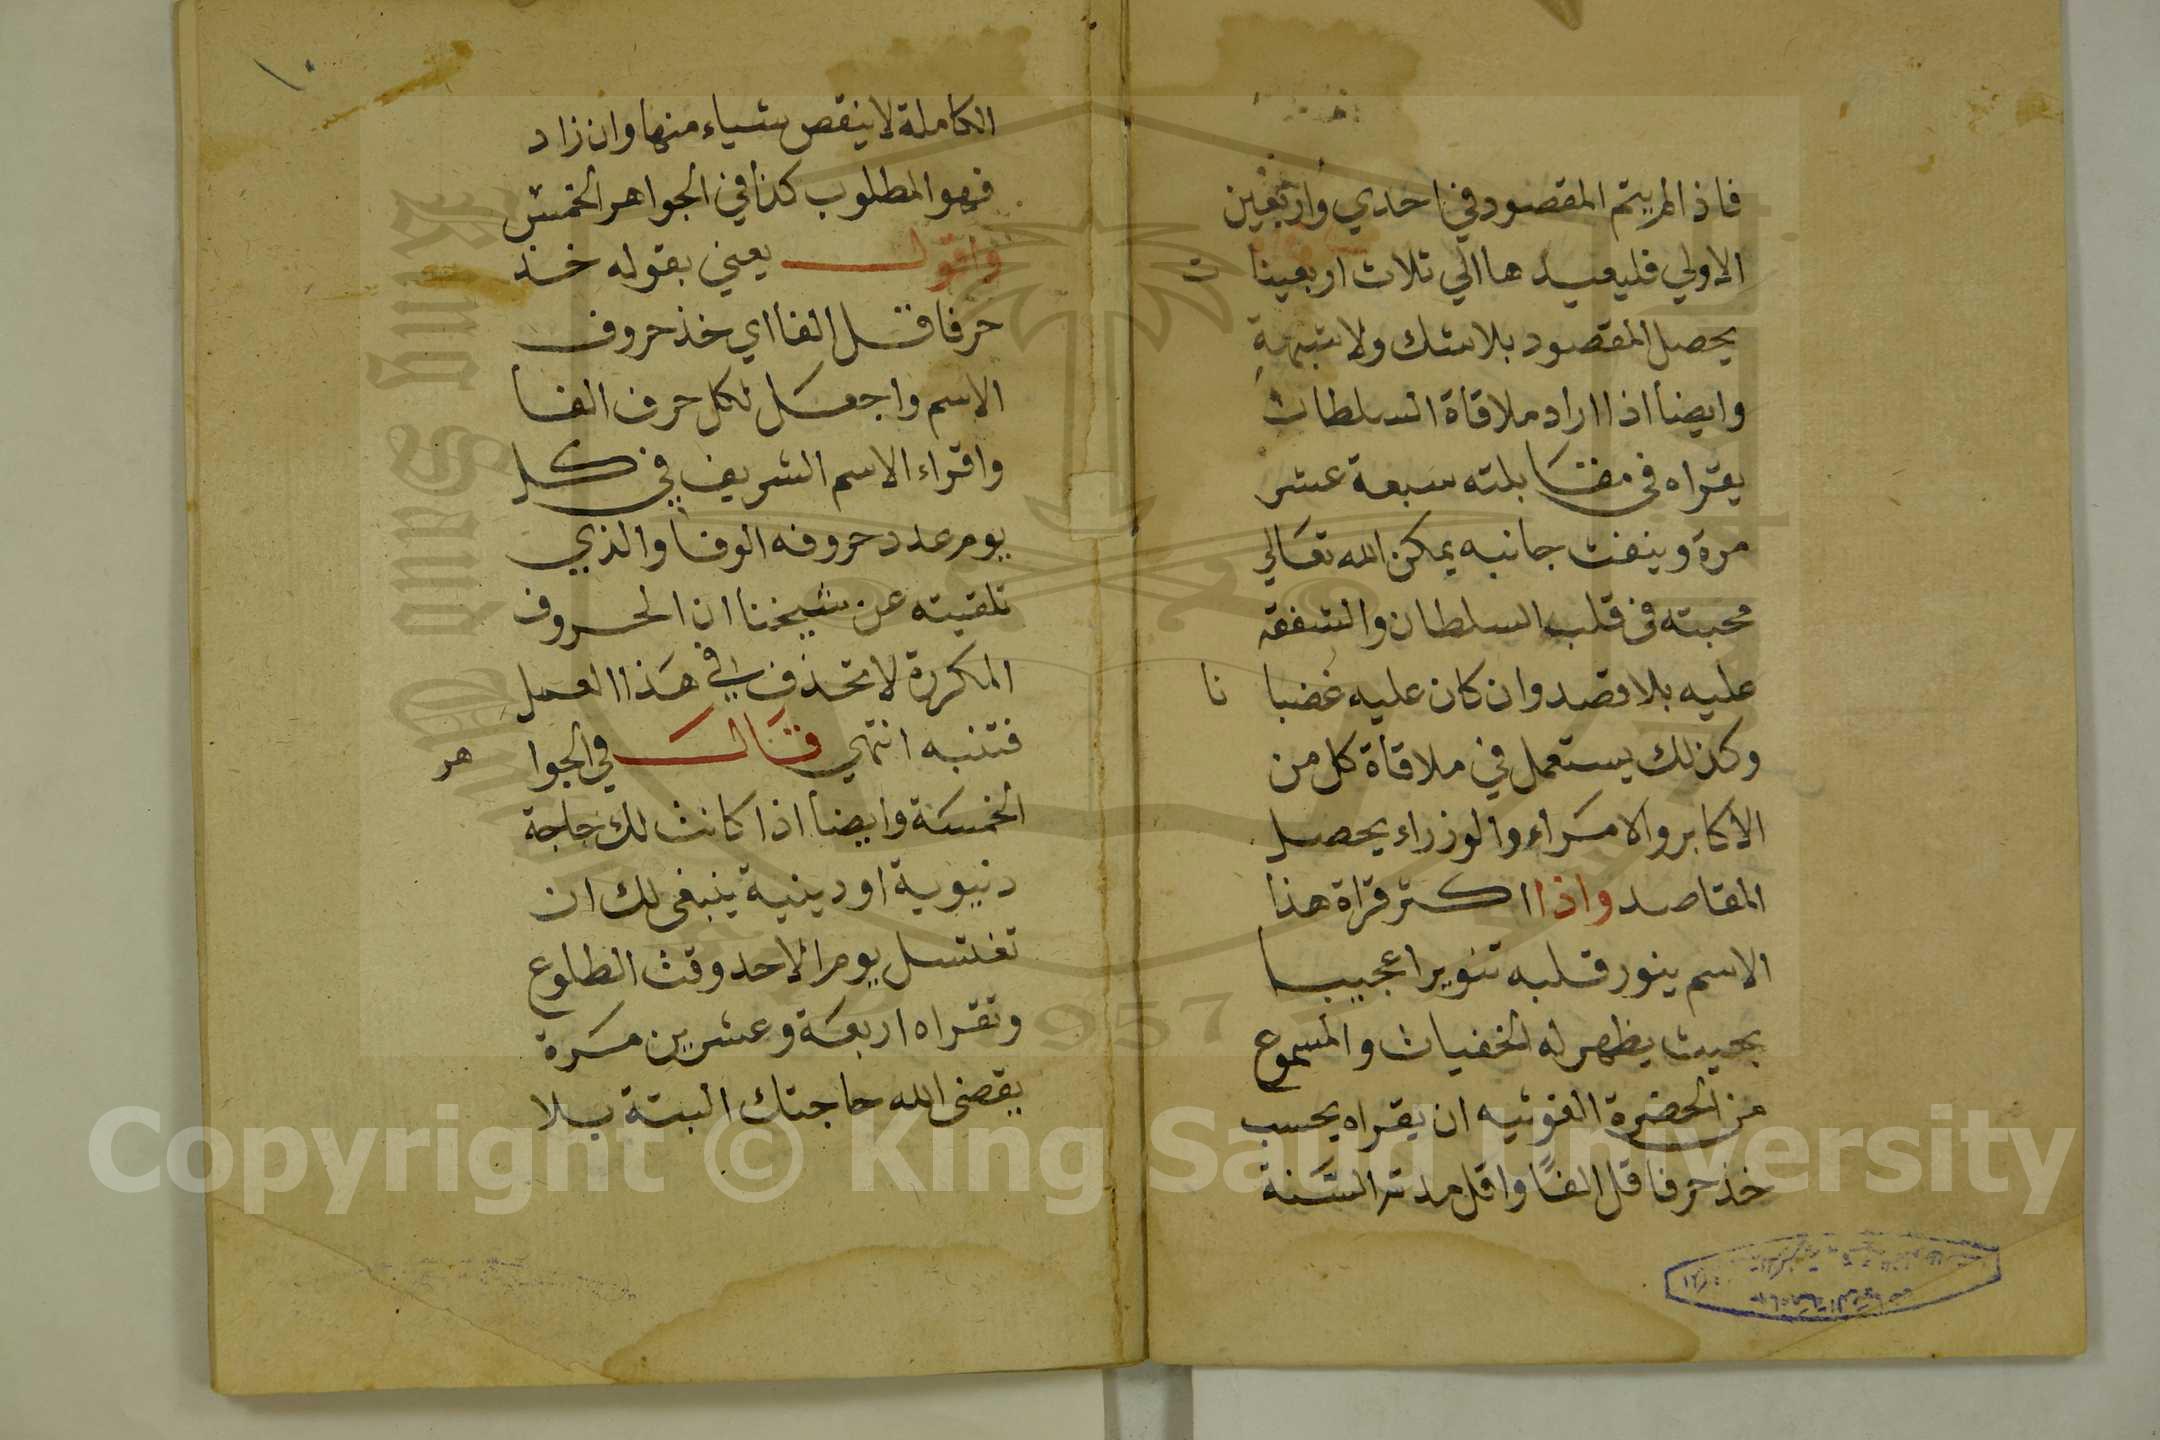 فاذا لم يتم المقصود في احدي واربعين
الاولي فليعيدها الي ثلاث اربعينات
يحصل المقصود بلا شك ولا شبهة
وايضا اذا اراد ملاقاة السلطان
يقراه في مقابلته سبعة عشر
مرة وينفث جانبه يمكن الله تعالي
محبته في قلب السلطان والشفقه
عليه بلا قصد وان كان عليه غضبانا
وكذلك يستعمل في ملاقاة كل من
الاكابر والامراء والوزراء يحصل
المقاصد واذا اكثر قراة هذا
الاسم ينور قلبه تنويرا عجيبا
بحيث يظهر له الخفيات والمسموع
من الحضرة الغوثيه ان يقراه بحسب
خذ حرفا قل الفا واقل مدته السنة
١٠
الكاملة لا ينقص شياء منها وان زاد
فهو المطلوب كذا في الجواهر الخمس
واقول يعني بقوله خذ
حرفا قل الفا اي خذ حروف
الاسم واجعل لكل حرف الفا
واقراء الاسم الشريف في كل
يوم عدد حروفه الوفا والذي
تلقيته عن شيخنا ان الحروف
المكررة لا تحذف في هذا العمل
فتنبه انتهي قال في الجواهر
الخمسة وايضا اذا كانت لك حاجة
دنيوية او دينية ينبغي لك ان
تغتسل يوم الاحد وقت الطلوع
وتقراه اربعة وعشرين مرة
يقضي الله حاجتك البتة بلا
Copyright © King Saud University
King Saud University
1957